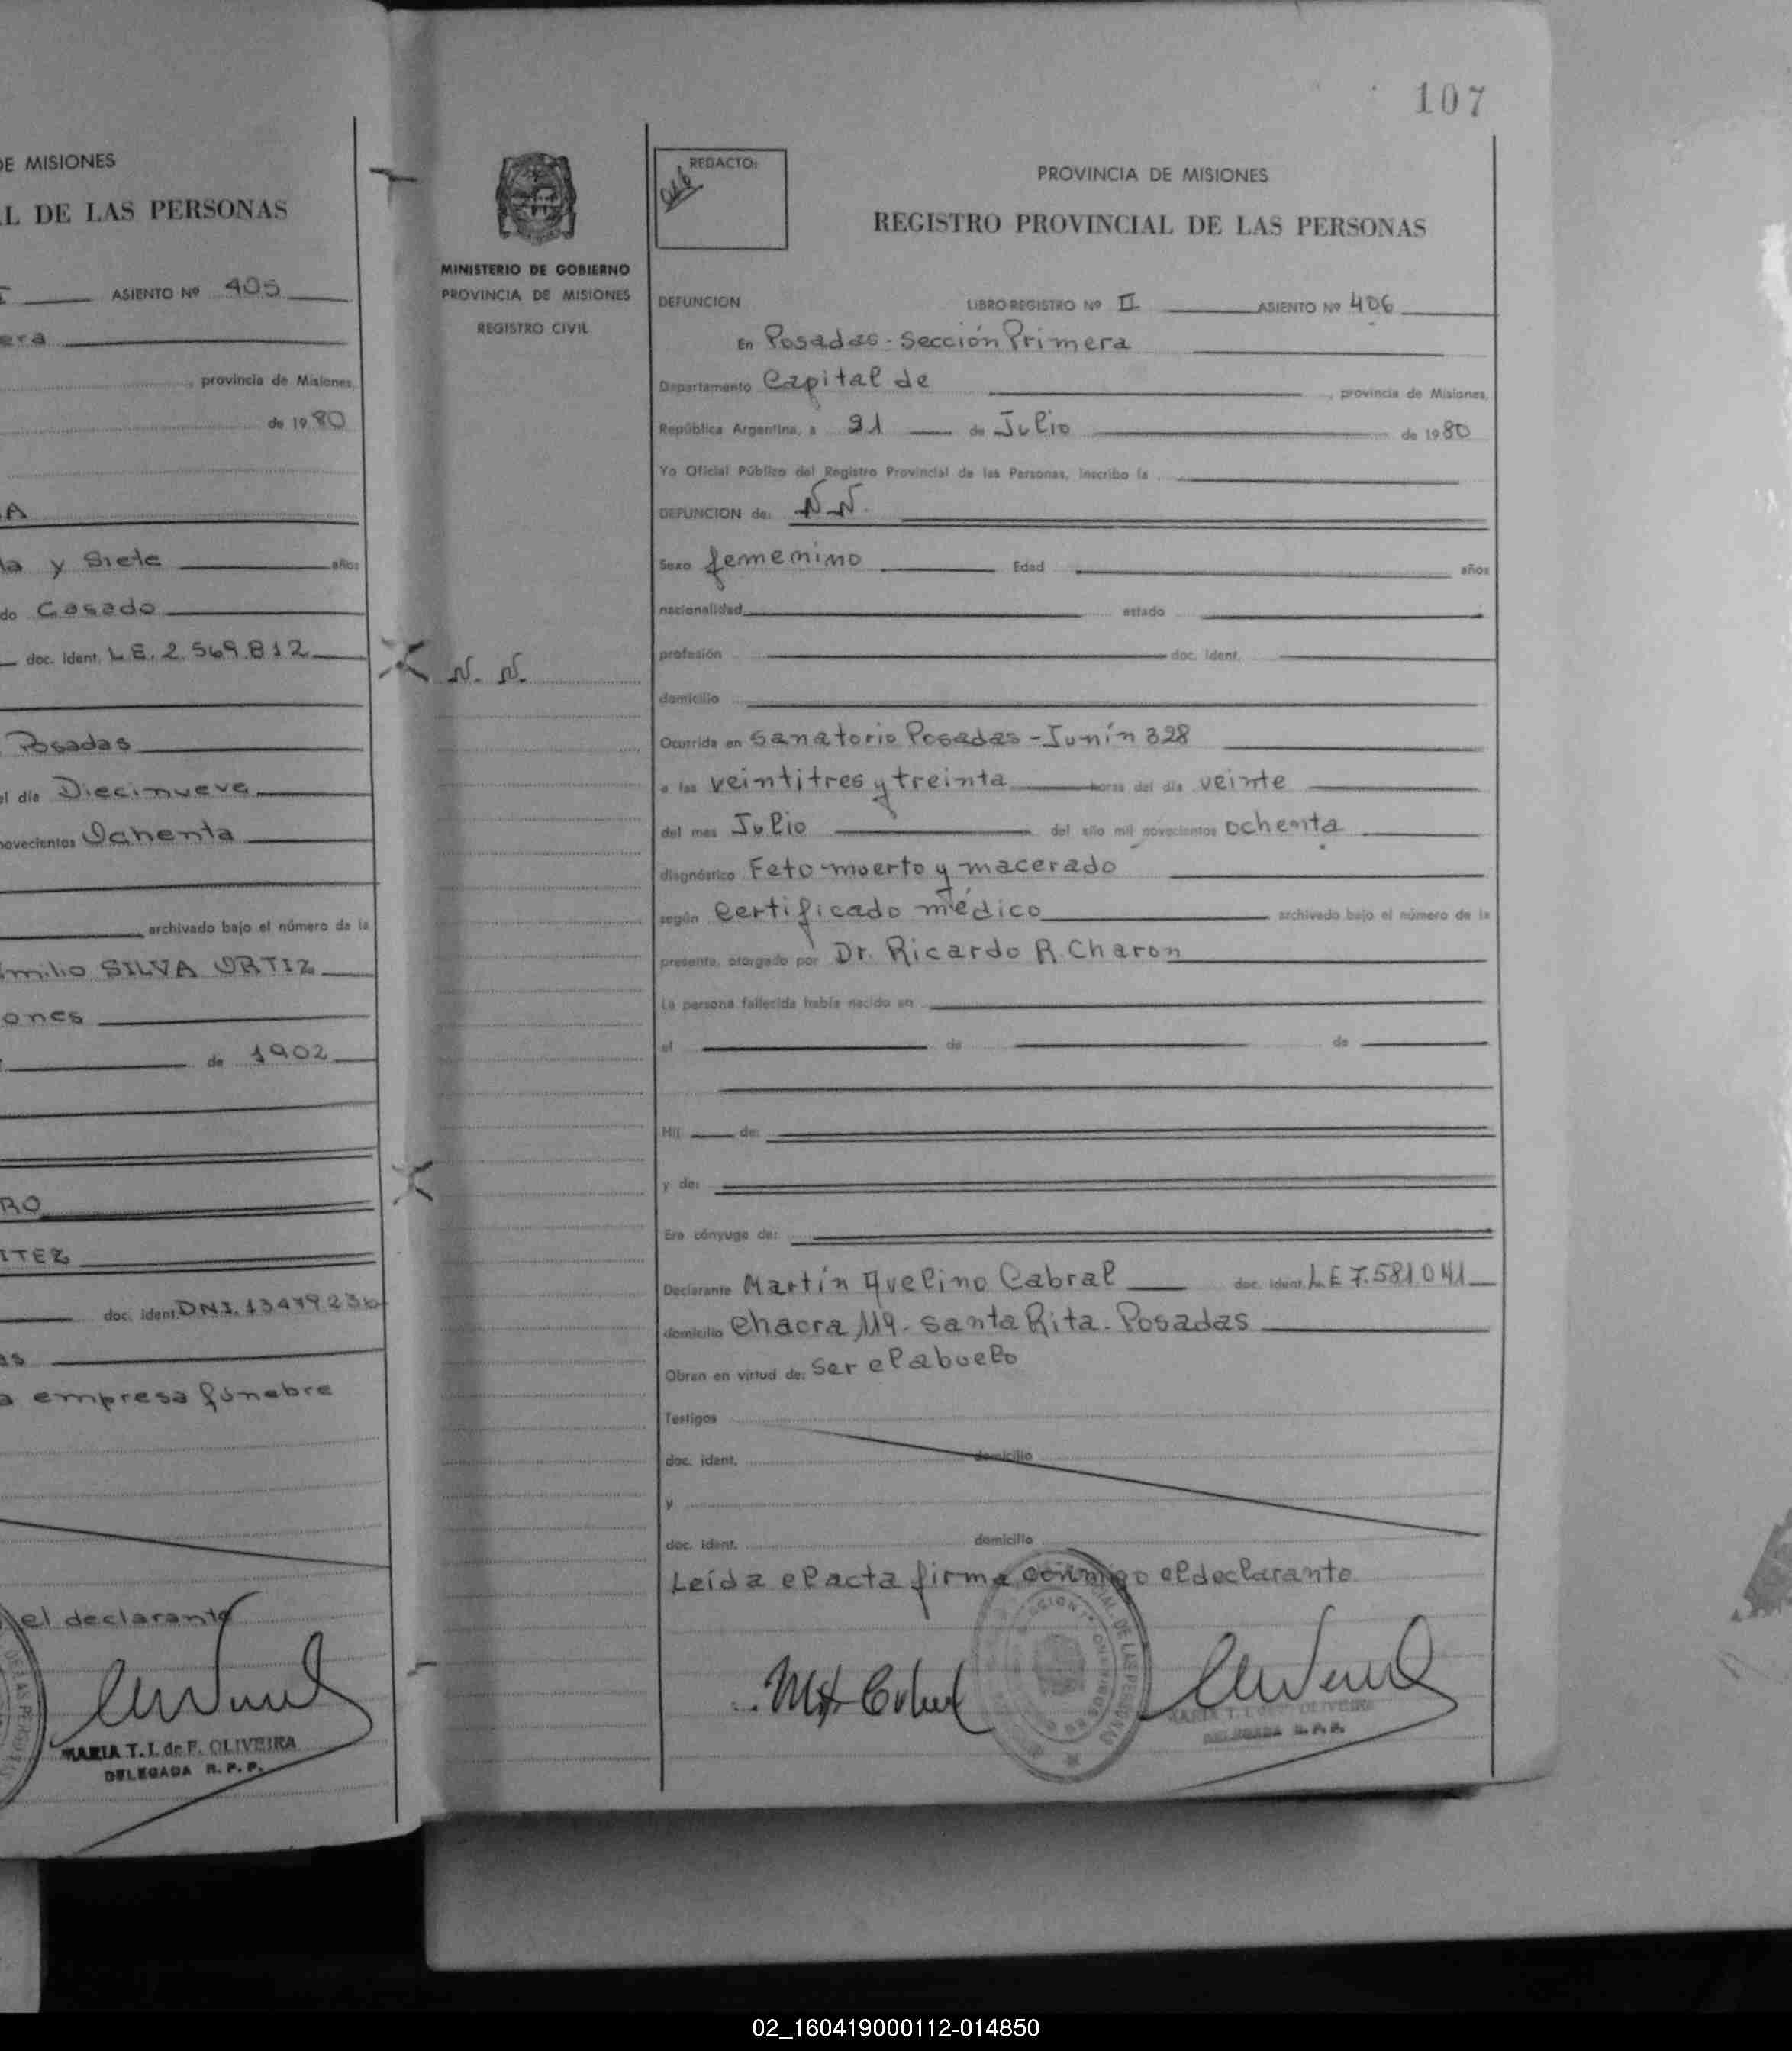 DE MISIONES
L DE LAS PERSONAS
ASIENTO Nº 405
era
, provincia de Misiones,
de 1980
A
ta y Siete años
do Casado
doc. ident. L E. 2.569.812
Posadas
el día Diecinueve
novecientos Ochenta
archivado bajo el número de la
milio SILVA ORTIZ
ones
de 1902
RO
ITEZ
doc. ident. DNI. 13479236
as
a empresa fúnebre
el declarante
MARIA T. I. de F. OLIVEIRA
DELEGADA R. P. P.
107
MINISTERIO DE GOBIERNO
PROVINCIA DE MISIONES
REGISTRO CIVIL
N. N.
REDACTO:
PROVINCIA DE MISIONES
REGISTRO PROVINCIAL DE LAS PERSONAS
DEFUNCION LIBRO REGISTRO Nº II ASIENTO Nº 406
En Posadas - Sección Primera
Departamento Capital de , provincia de Misiones,
República Argentina, a 21 de Julio de 1980
Yo Oficial Público del Registro Provincial de las Personas, inscribo la
DEFUNCION de: N N.
Sexo femenino Edad años
nacionalidad estado
profesión doc. ident.
domicilio
Ocurrida en Sanatorio Posadas - Junín 328
a las veintitres y treinta horas del día veinte
del mes Julio del año mil novecientos ochenta
diagnóstico Feto muerto y macerado
según Certificado médico archivado bajo el número de la
presente, otorgado por Dr. Ricardo R. Charon
La persona fallecida había nacido en
el de de
Hij de:
y de:
Era cónyuge de:
Declarante Martín Avelino Cabral doc. ident. L E 7.581.041
domicilio Chacra 119 - Santa Rita - Posadas
Obran en virtud de: Ser el abuelo
Testigos
doc. ident. domicilio
y
doc. ident. domicilio
Leída el acta firma conmigo el declarante
MARIA T. I. de F. OLIVEIRA
DELEGADA R. P. P.
02_160419000112-014850